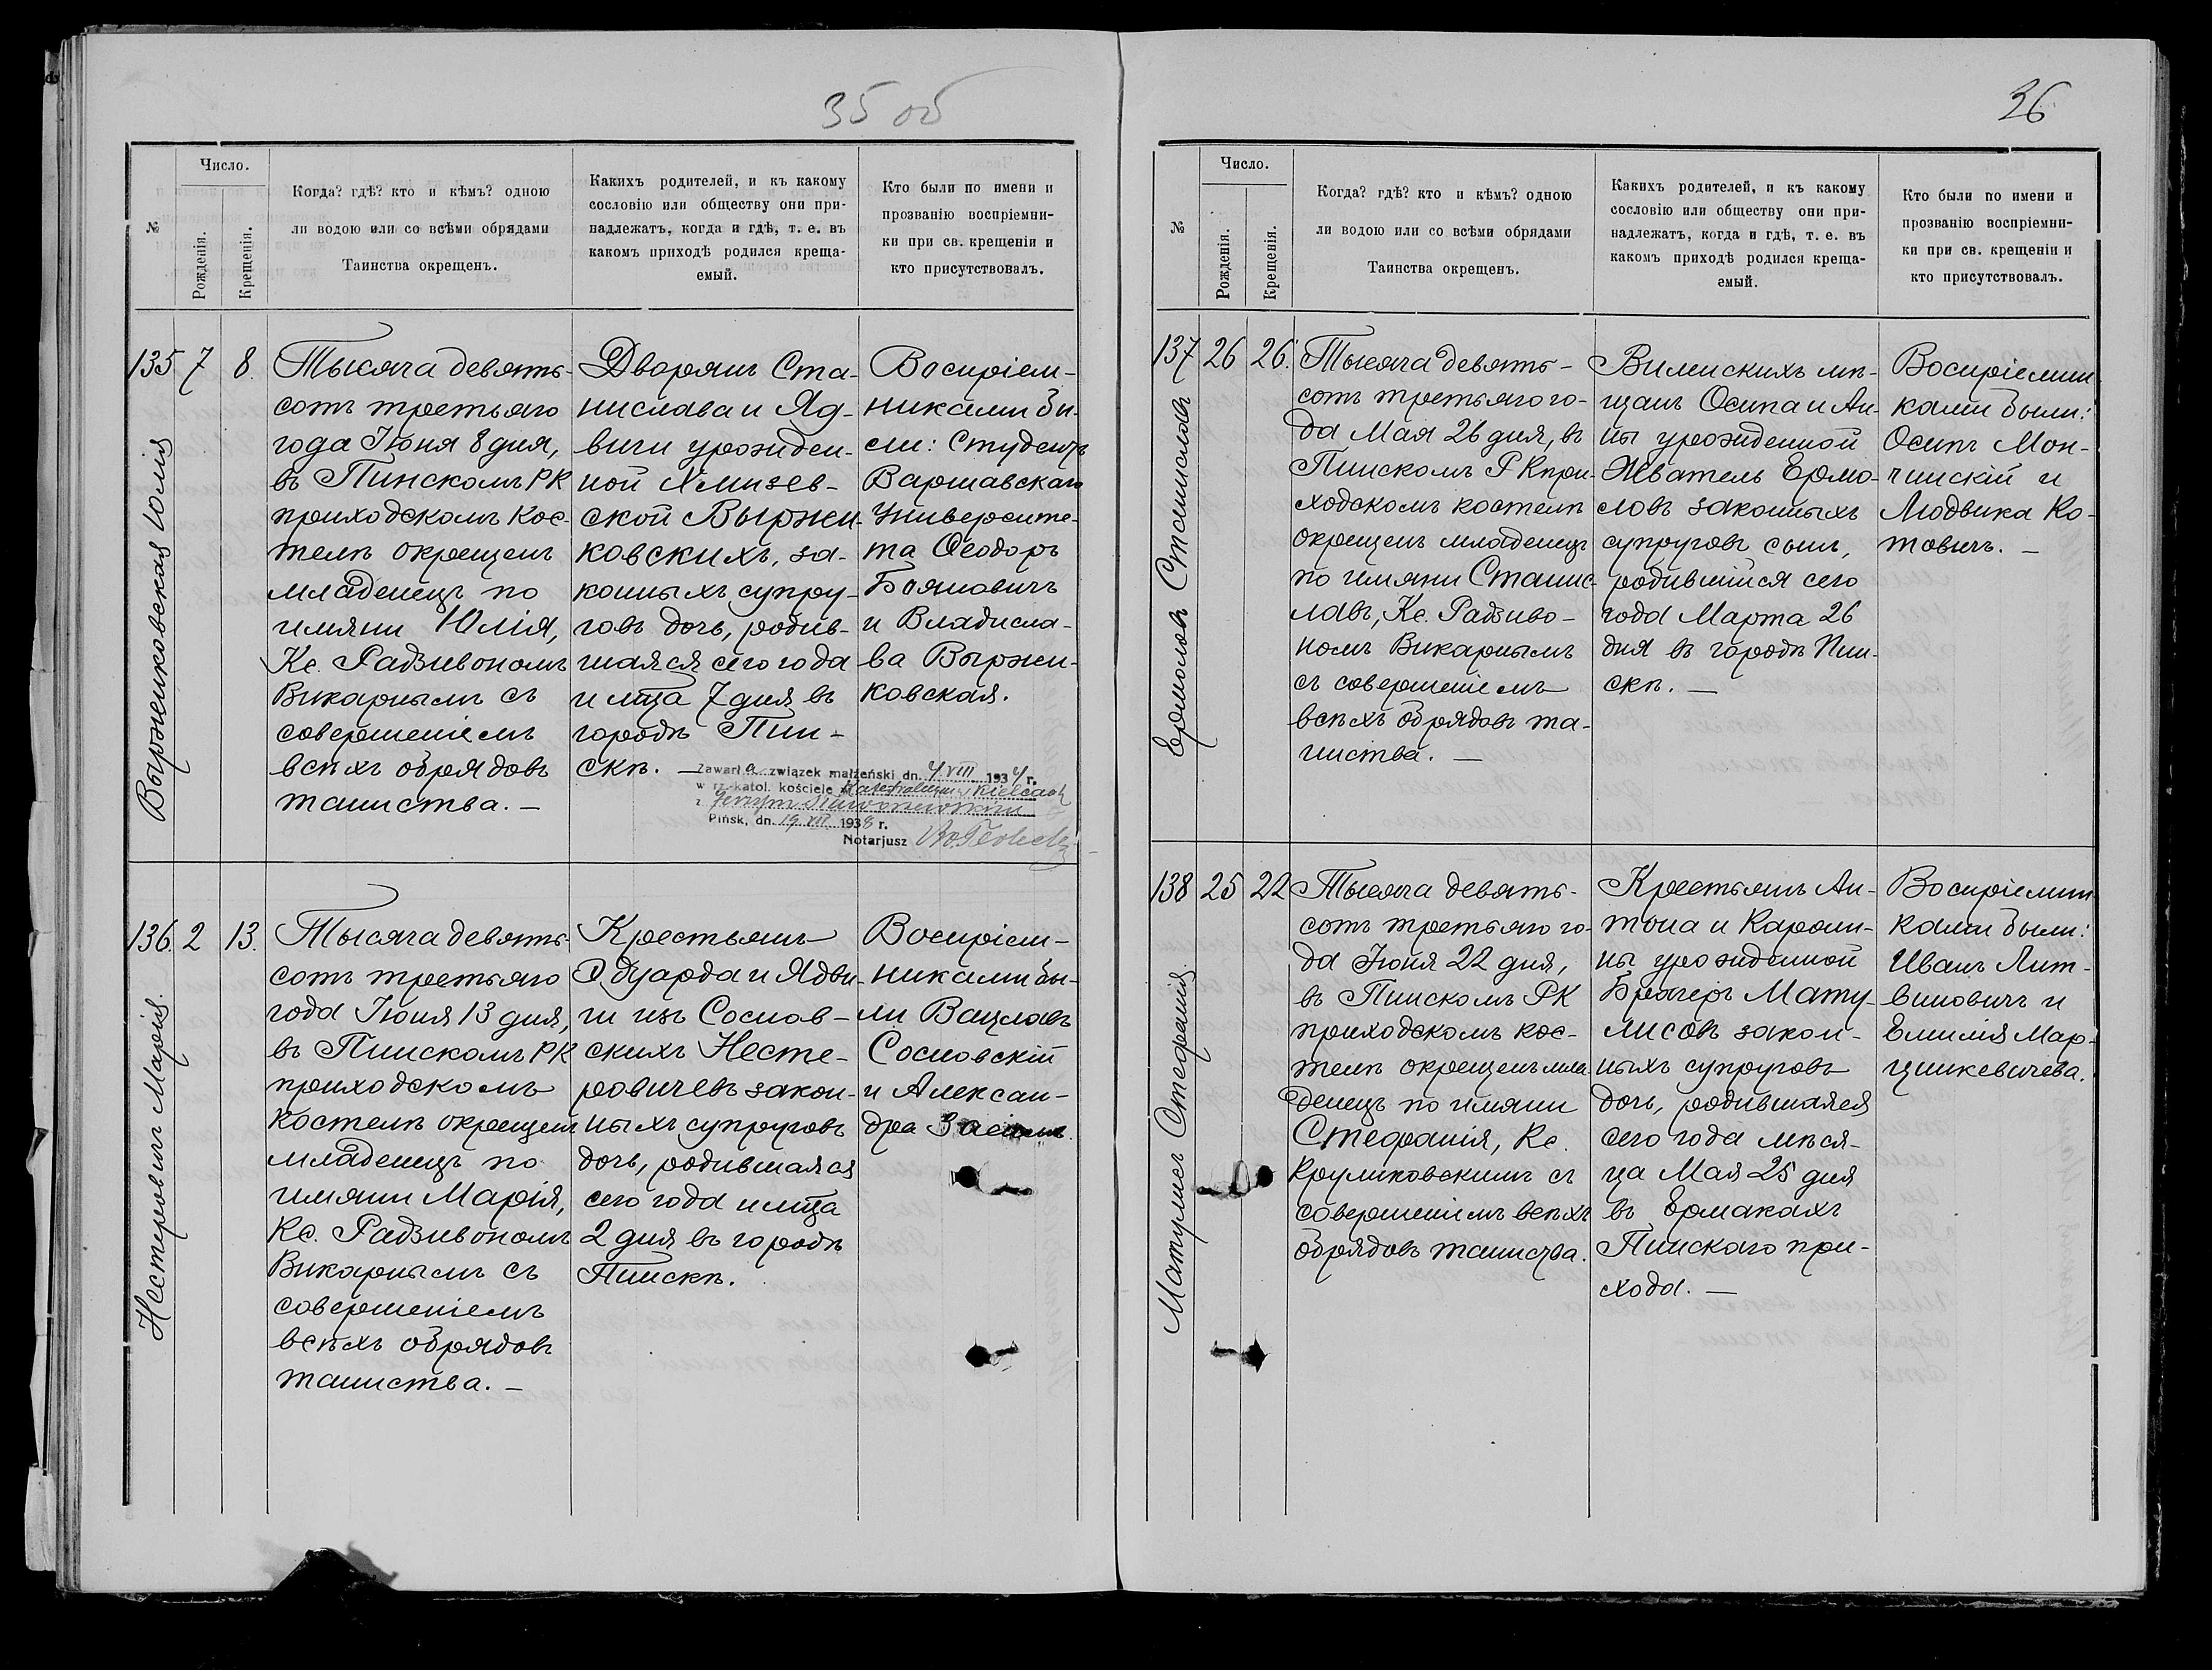 35 об
№
Число.
Рожденія.
Крещенія.
Когда? гдѣ? кто и кѣмъ? одною
ли водою или со всѣми обрядами
Таинства окрещенъ.
Какихъ родителей, и къ какому
сословію или обществу они при-
надлежатъ, когда и гдѣ, т. е. въ
какомъ приходѣ родился креща-
емый.
Кто были по имени и
прозванію воспріемни-
ки при св. крещеніи и
кто присутствовалъ.
Вырженковская Юлія
135 7 8.
Тысяча девять-
сотъ третьяго
года Іюня 8 дня,
въ Пинскомъ РК
приходскомъ кос-
телѣ окрещенъ
младенецъ по
имяни Юлія,
Кс. Радзивономъ
Викарнымъ съ
совершеніемъ
всѣхъ обрядовъ
таинства. —
Дворянъ Ста-
нислава и Яд-
виги урожден-
ной Хмизев-
ской Выржи-
ковскихъ, за-
конныхъ супру-
говъ дочь, родив-
шаяся сего года
и мца 7 дня въ
городѣ Пин-
скѣ. —
Воспріем-
никами бы-
ли: Студентъ
Варшавскаго
Университе-
та Ѳеодоръ
Бояновичъ
и Владисла-
ва Выржи-
ковская.
Zawarła związek małżeński dn. 4 VIII 1934 r.
w rz.-katol. kościele Katedralnym w Kielcach
z Jerzym
Pińsk, dn. 19 VII 1938 r.
Notarjusz
Нестеровичъ Марія.
136. 2 13.
Тысяча девять-
сотъ третьяго
года Іюня 13 дня,
въ Пинскомъ РК
приходскомъ
костелѣ окрещенъ
младенецъ по
имяни Марія,
Кс. Радзивономъ
Викарнымъ съ
совершеніемъ
всѣхъ обрядовъ
таинства. —
Крестьянъ
Эдуарда и Ядви-
ги изъ Соснов-
скихъ Несте-
ровичевъ закон-
ныхъ супруговъ
дочь, родившаяся
сего года и мца
2 дня въ городѣ
Пинскѣ.
Воспріем-
никами бы-
ли Вацлавъ
Сосновскій
и Алексан-
дра
36
№
Число.
Рожденія.
Крещенія.
Когда? гдѣ? кто и кѣмъ? одною
ли водою или со всѣми обрядами
Таинства окрещенъ.
Какихъ родителей, и къ какому
сословію или обществу они при-
надлежатъ, когда и гдѣ, т. е. въ
какомъ приходѣ родился креща-
емый.
Кто были по имени и
прозванію воспріемни-
ки при св. крещеніи и
кто присутствовалъ.
Ермоловъ Станиславъ
137 26 26.
Тысяча девять-
сотъ третьяго го-
да Мая 26 дня, въ
Пинскомъ РК при-
ходскомъ костелѣ
окрещенъ младенецъ
по имяни Станис-
лавъ, Кс. Радзиво-
номъ Викарнымъ
съ совершеніемъ
всѣхъ обрядовъ та-
инства. —
Виленскихъ мѣ-
щанъ Осипа и Ан-
ны урожденной
Жватель Ермо-
ловъ законныхъ
супруговъ сынъ,
родившійся сего
года Марта 26
дня въ городѣ Пин-
скѣ. —
Воспріемни-
ками были:
Осипъ Мон-
чинскій и
Людвика Ко-
товичъ. —
Матулисъ Стефанія.
138 25 22
Тысяча девять-
сотъ третьяго го-
да Іюня 22 дня,
въ Пинскомъ РК
приходскомъ кос-
телѣ окрещенъ мла-
денецъ по имяни
Стефанія, Кс.
Круликовскимъ съ
совершеніемъ всѣхъ
обрядовъ таинства.
Крестьянъ Ан-
тона и Кароли-
ны урожденной
Брегеръ Мату-
лисовъ закон-
ныхъ супруговъ
дочь, родившаяся
сего года мѣся-
ца Мая 25 дня
въ Ермакахъ
Пинскаго при-
хода. —
Воспріемни-
ками были:
Иванъ Лит-
виновичъ и
Емилія Мар-
цинкевичева.